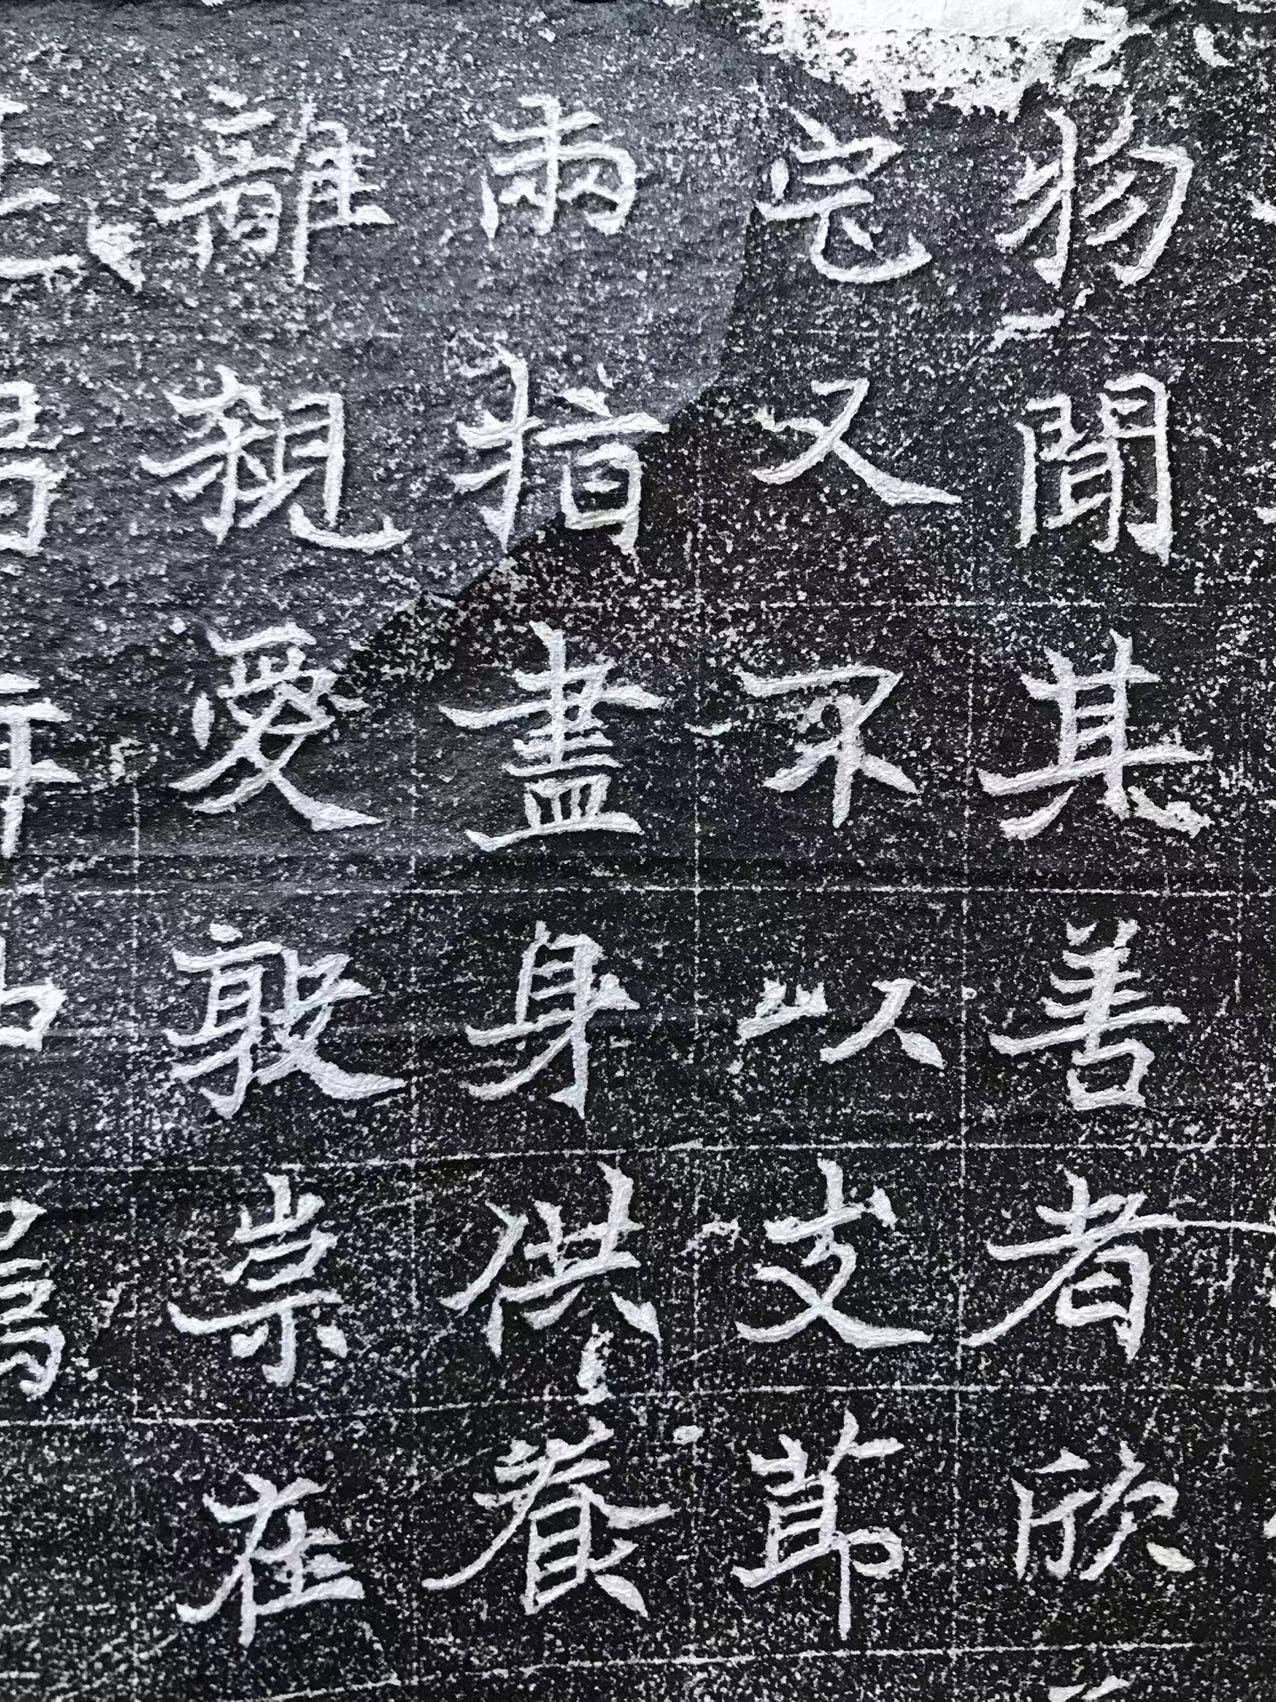 物聞其善者欣
定又不以支節
雨指盡身供養
離親愛敦崇在